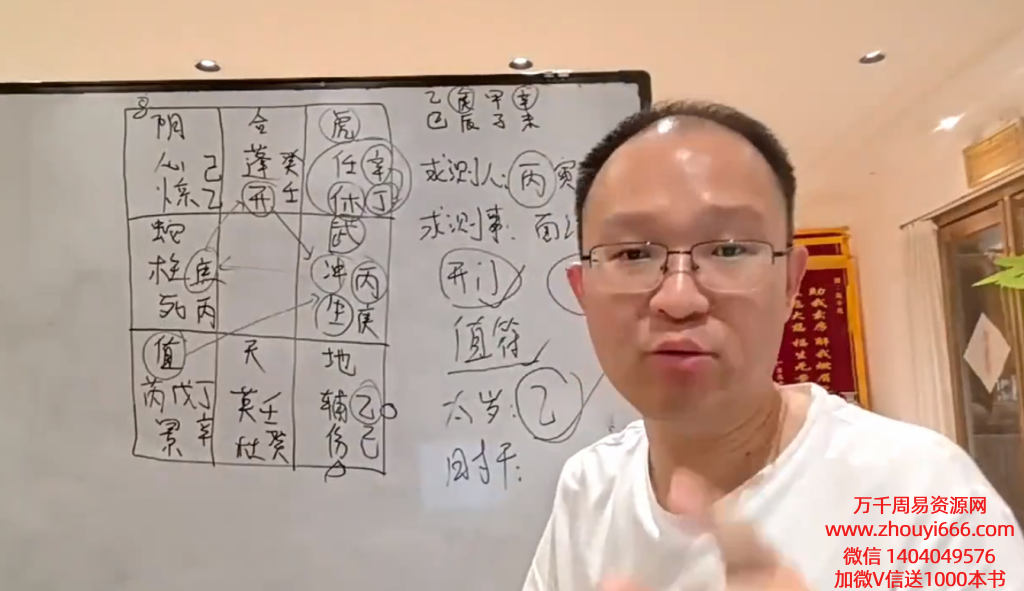 8
阴
心 己
休 乙
合
蓬 癸
开 壬
虎
任 辛
休 丁
蛇
柱 庚
死 丙
武
冲 丙
生 庚
值
芮 戊 丁
景 辛
天
英 壬
杜 癸
地
辅 乙
伤 己
乙 庚 甲 辛
巳 辰 子 未
求测人: 丙 寅
求测事: 面
开门
值符
太岁: 乙
时干:
万千周易资源网
www.zhouyi666.com
微信 1404049576
加微V信送1000本书